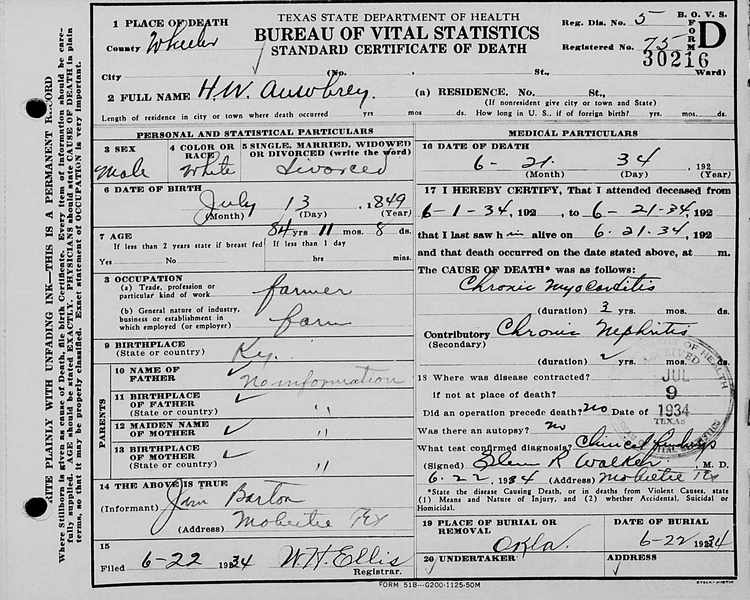 TEXAS STATE DEPARTMENT OF HEALTH
BUREAU OF VITAL STATISTICS
STANDARD CERTIFICATE OF DEATH
B. O. V. S.
FORM D
Reg. Dis. No. 5
Registered No. 75
30216
1 PLACE OF DEATH
County Wheeler
City (No. , St., Ward)
2 FULL NAME H.W. Ausobrey. (a) RESIDENCE. No. St.,
(If nonresident give city or town and State)
Length of residence in city or town where death occurred yrs mos ds. How long in U. S., if of foreign birth? yrs. mos. ds.
PERSONAL AND STATISTICAL PARTICULARS
3 SEX
Male
4 COLOR OR RACE
White
5 SINGLE, MARRIED, WIDOWED OR DIVORCED (write the word)
Divorced
6 DATE OF BIRTH
July 13 1849
(Month) (Day) (Year)
7 AGE 84 yrs 11 mos 8 ds.
If less than 2 years state if breast fed If less than 1 day
Yes No hrs mins.
8 OCCUPATION
(a) Trade, profession or particular kind of work farmer
(b) General nature of industry, business or establishment in which employed (or employer) farm
9 BIRTHPLACE
(State or country) Ky.
PARENTS
10 NAME OF FATHER No information
11 BIRTHPLACE OF FATHER
(State or country) "
12 MAIDEN NAME OF MOTHER "
13 BIRTHPLACE OF MOTHER
(State or country) "
14 THE ABOVE IS TRUE
(Informant) Jim Barton
(Address) Mobeetie Tex
15
Filed 6-22 1934 W.H. Ellis
Registrar.
MEDICAL PARTICULARS
16 DATE OF DEATH
6- 21. 34, 192
(Month) (Day) (Year)
17 I HEREBY CERTIFY, That I attended deceased from
6-1-34, 192 , to 6-21-34, 192
that I last saw him alive on 6-21-34, 192
and that death occurred on the date stated above, at m.
The CAUSE OF DEATH* was as follows:
Chronic Myocarditis
(duration) 3 yrs. mos. ds.
Contributory Chronic Nephritis
(Secondary)
(duration) 2 yrs. mos. ds.
18 Where was disease contracted?
If not at place of death?
Did an operation precede death? No Date of
Was there an autopsy? No
What test confirmed diagnosis? Clinical findings
(Signed) Glenn R Walker, M. D.
6-22, 1934 (Address) Mobeetie Tex
*State the disease Causing Death, or in deaths from Violent Causes, state (1) Means and Nature of Injury, and (2) whether Accidental, Suicidal or Homicidal.
19 PLACE OF BURIAL OR REMOVAL
Okla.
DATE OF BURIAL
6-22 1934
20 UNDERTAKER ADDRESS
JUL
9
1934
TEXAS
FORM 51B---G200-1125-50M
WRITE PLAINLY WITH UNFADING INK—THIS IS A PERMANENT RECORD
Where Stillborn is given as cause of Death, file birth Certificate. Every item of information should be carefully supplied. AGE should be stated EXACTLY. PHYSICIANS should state CAUSE OF DEATH in plain terms, so that it may be properly classified. Exact statement of OCCUPATION is very important.